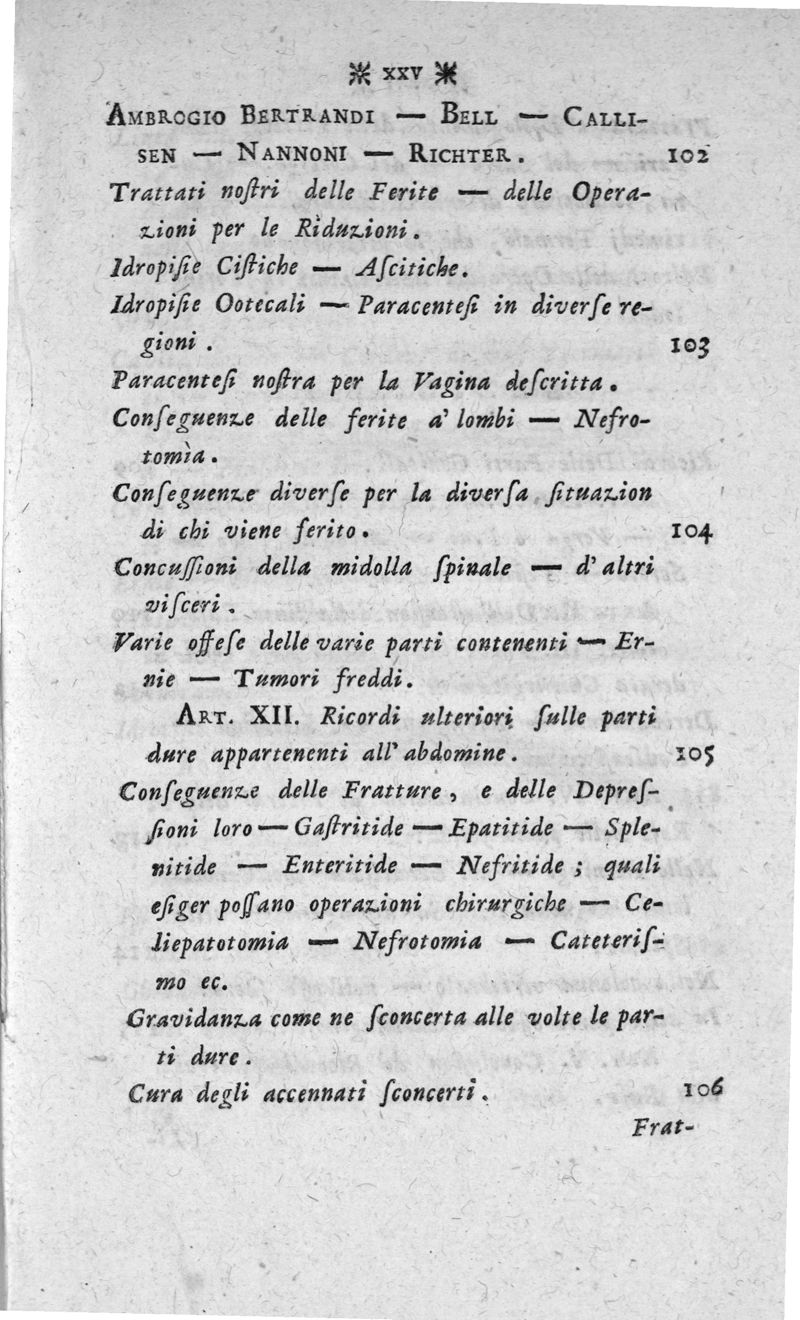 ※ XXV ※
AMBROGIO BERTRANDI — BELL — CALLI-
SEN — NANNONI — RICHTER. 102
Trattati noſtri delle Ferite — delle Opera-
zioni per le Riduzioni.
Idropiſie Ciſtiche — Aſcitiche.
Idropiſie Ootecali — Paracenteſi in diverſe re-
gioni. 103
Paracenteſi noſtra per la Vagina deſcritta.
Conſeguenze delle ferite a' lombi — Nefro-
tomìa.
Conſeguenze diverſe per la diverſa ſituazion
di chi viene ferito. 104
Concuſſioni della midolla ſpinale — d' altri
viſceri.
Varie offeſe delle varie parti contenenti — Er-
nie — Tumori freddi.
ART. XII. Ricordi ulteriori ſulle parti
dure appartenenti all' abdomine. 105
Conſeguenze delle Fratture, e delle Depreſ-
ſioni loro — Gaſtritide — Epatitide — Sple-
nitide — Enteritide — Nefritide; quali
eſiger poſſano operazioni chirurgiche — Ce-
liepatotomia — Nefrotomia — Cateteriſ-
mo ec.
Gravidanza come ne ſconcerta alle volte le par-
ti dure.
Cura degli accennati ſconcerti. 106
Frat-